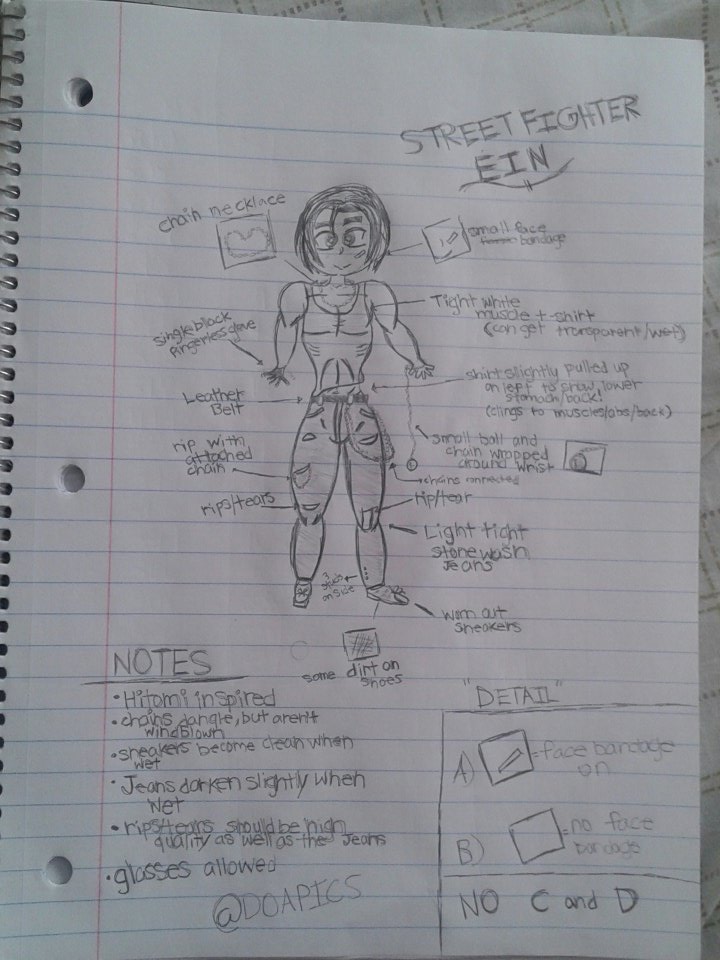 STREET FIGHTER
EIN
chain necklace
small face
bandage
Tight white
muscle t-shirt
(can get transparent/wet)
single black
fingerless glove
shirt slightly pulled up
on left to show lower
stomach/back!
(clings to muscles/abs/back)
Leather
Belt
small ball and
chain wrapped
around wrist
rip with
attached
chain
chains connected
rips/tears
rip/tear
Light tight
stone wash
Jeans
3
studs
on side
worn out
sneakers
some dirt on
shoes
NOTES
• Hitomi inspired
• chains dangle, but aren't
windblown
• sneakers become clean when
wet
• Jeans darken slightly when
wet
• rips/tears should be high
quality as well as the Jeans
• glasses allowed
@DOAPICS
"DETAIL"
A) = face bandage
on
B) = no face
bandage
NO C and D